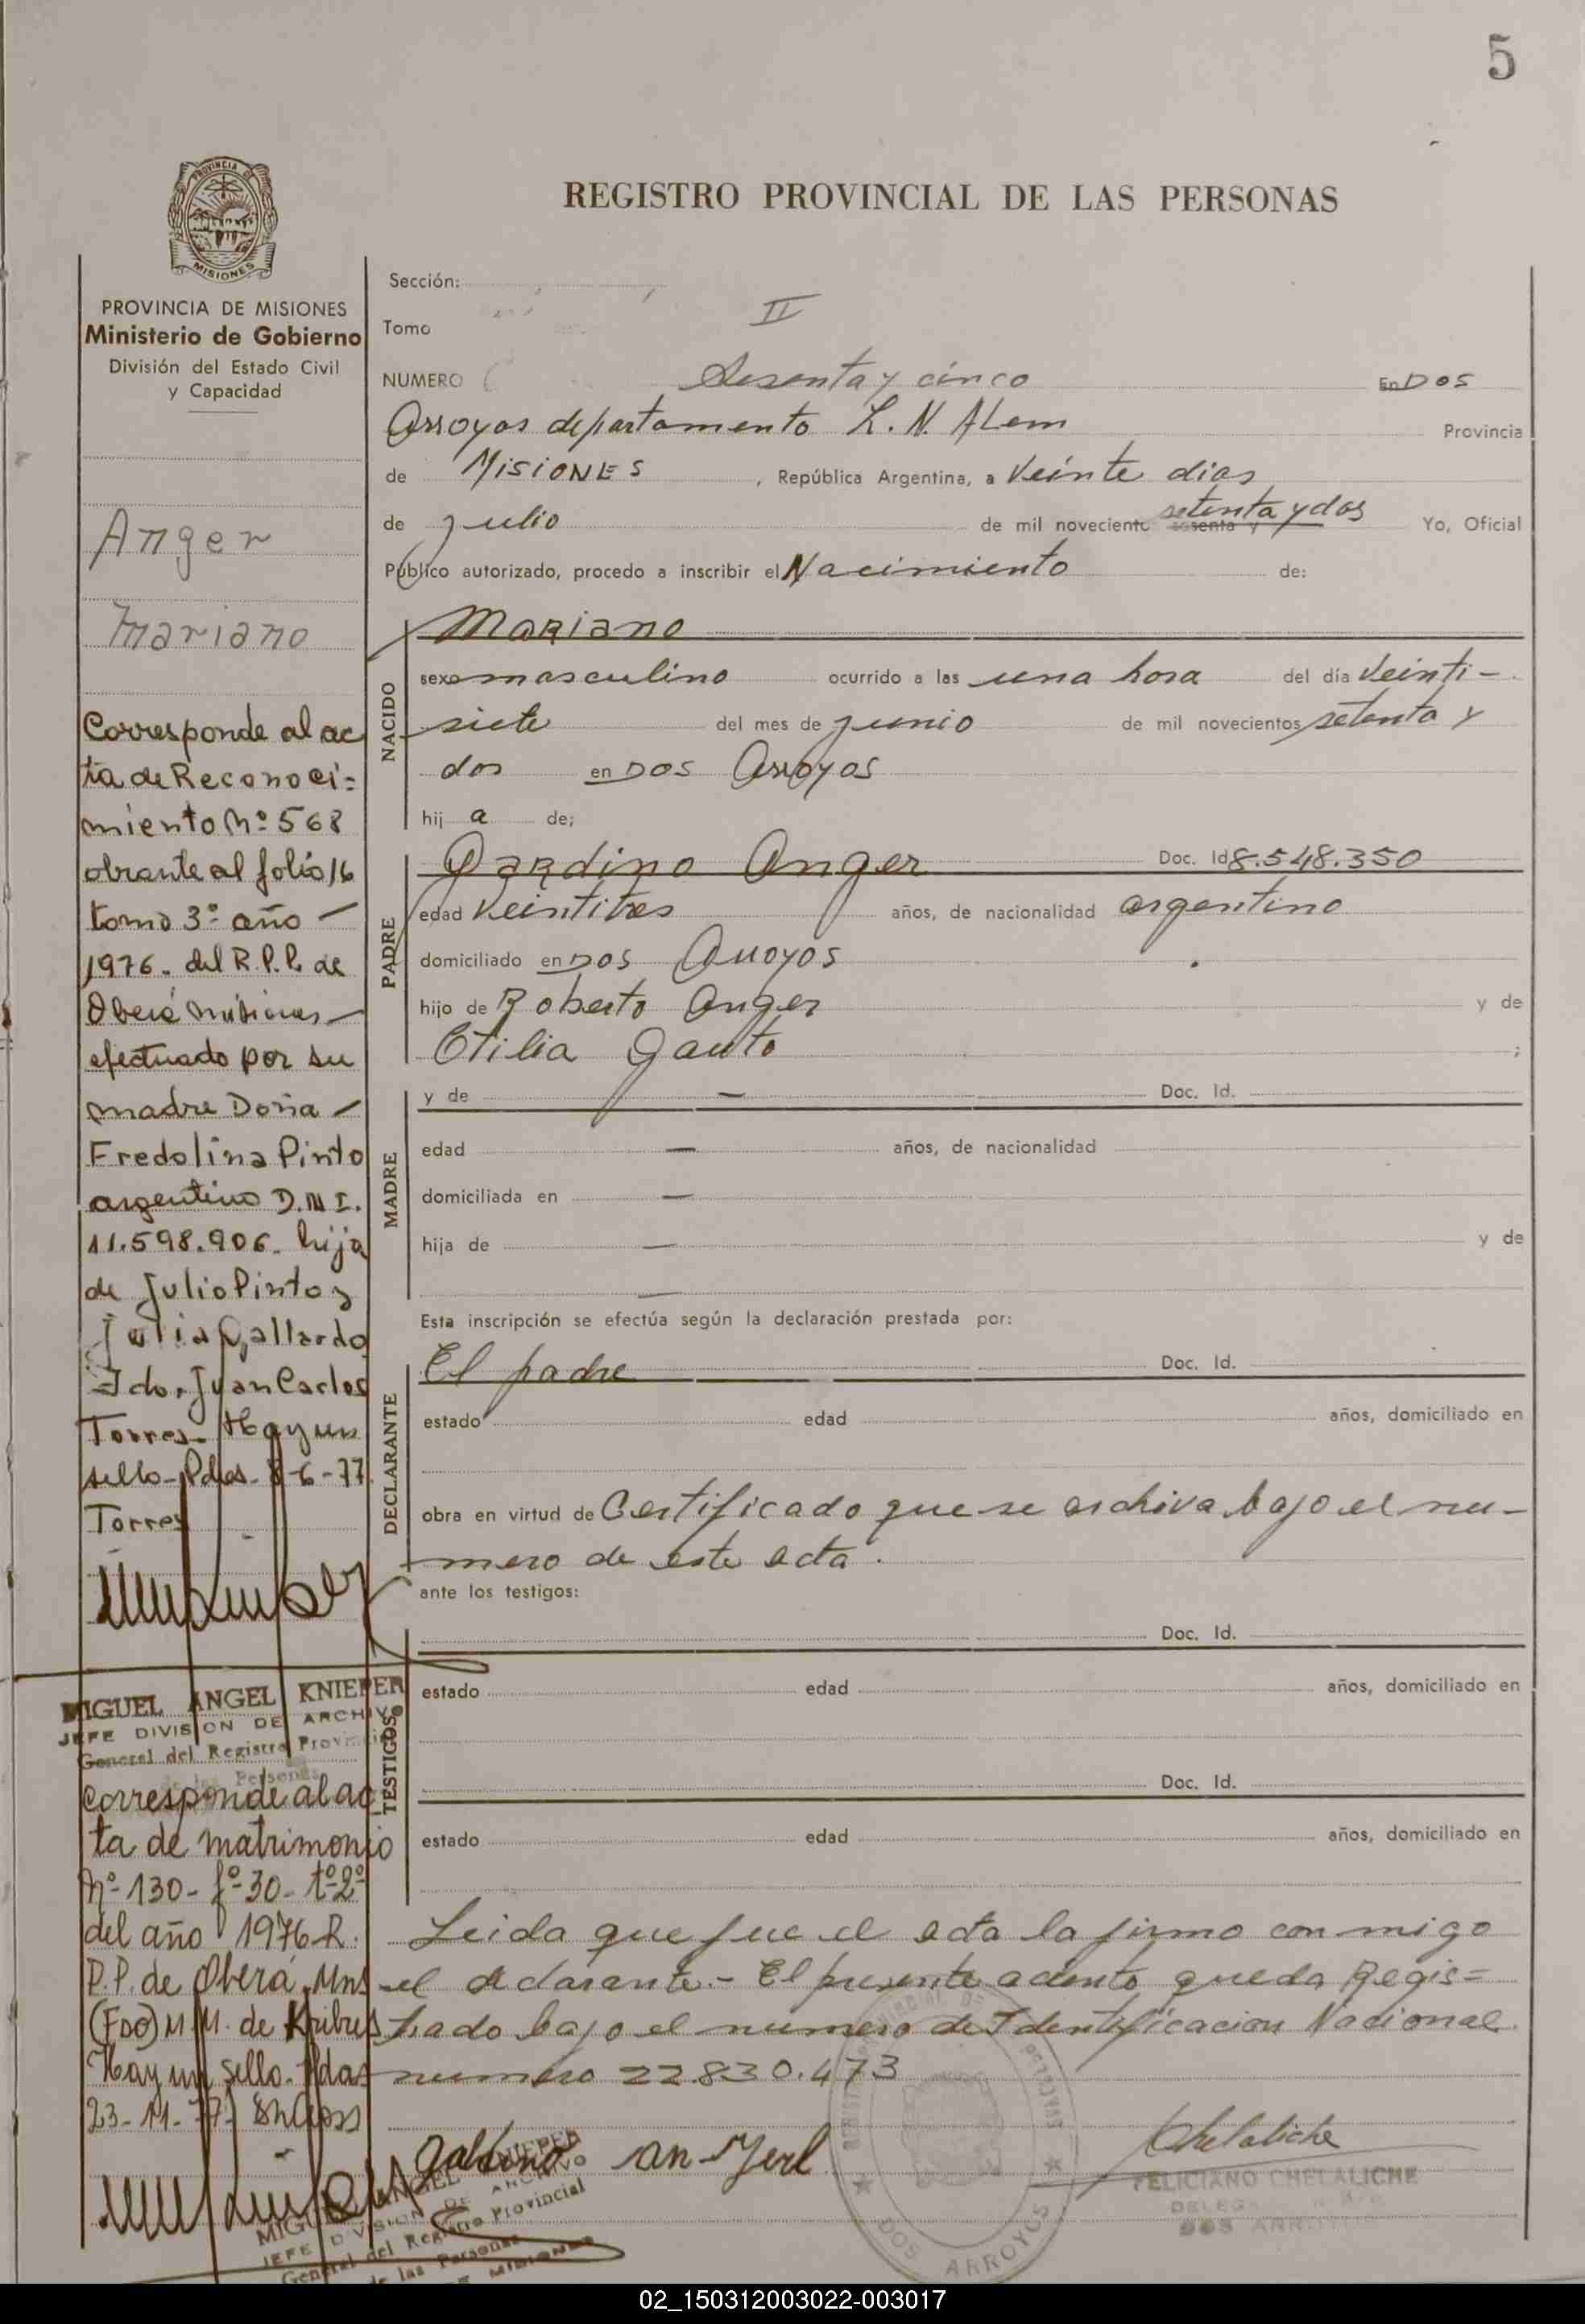 5
PROVINCIA DE
MISIONES
REGISTRO PROVINCIAL DE LAS PERSONAS
PROVINCIA DE MISIONES
Ministerio de Gobierno
División del Estado Civil
y Capacidad
Anger
Mariano
Corresponde al ac
ta de Reconoci=
miento Nº 568
obrante al folio 16
tomo 3º año —
1976. del R.P.P. de
Oberá Misiones —
efectuado por su
madre Doña —
Fredolina Pinto
argentino D.N.I.
11.598.906. hija
de Julio Pinto y
Julia Gallardo
Fdo. Juan Carlos
Torres - Hay un
sello - Pdas - 8-6-77.
Torres
MIGUEL ANGEL KNIEPER
JEFE DIVISION DE ARCHIVO
General del Registro Provincial
de las Personas
Corresponde al ac
ta de matrimonio
Nº 130 - fº 30 - tº 2º
del año 1976 R.
P.P. de Oberá, Mns
(Fdo) M.M. de
Hay un sello. Pdas
23-11-77)
Sección:
Tomo II
NUMERO Sesenta y cinco En DOS
Arroyos departamento L. N. Alem Provincia
de MISIONES, República Argentina, a Veinte dias
de julio de mil noveciento sesenta y setenta y dos Yo, Oficial
Público autorizado, procedo a inscribir el Nacimiento de:
NACIDO
Mariano
sexo masculino ocurrido a las una hora del día Veinti-
siete del mes de junio de mil novecientos setenta y
dos en DOS Arroyos
hij a de;
PADRE
Anger Doc. Id 8.548.350
edad Veintitres años, de nacionalidad argentino
domiciliado en DOS Arroyos
hijo de Roberto Anger y de
Otilia Gauto ;
MADRE
y de — Doc. Id.
edad — años, de nacionalidad
domiciliada en —
hija de — y de
—
Esta inscripción se efectúa según la declaración prestada por:
DECLARANTE
El padre Doc. Id.
estado edad años, domiciliado en
obra en virtud de Certificado que se archiva bajo el nu-
mero de este acta.
ante los testigos:
TESTIGOS
Doc. Id.
estado edad años, domiciliado en
Doc. Id.
estado edad años, domiciliado en
Leida que fue el acta la firmo con migo
el declarante.- El presente aciento queda Regis=
trado bajo el numero de Identificacion Nacional
numero 22.830.473
Chelaliche
FELICIANO CHELALICHE
DOS ARROYOS
DOS ARROYOS
MIGUEL ANGEL KNIEPER
JEFE DIVISION DE ARCHIVO
General del Registro Provincial
de las Personas
MISIONES
02_150312003022-003017